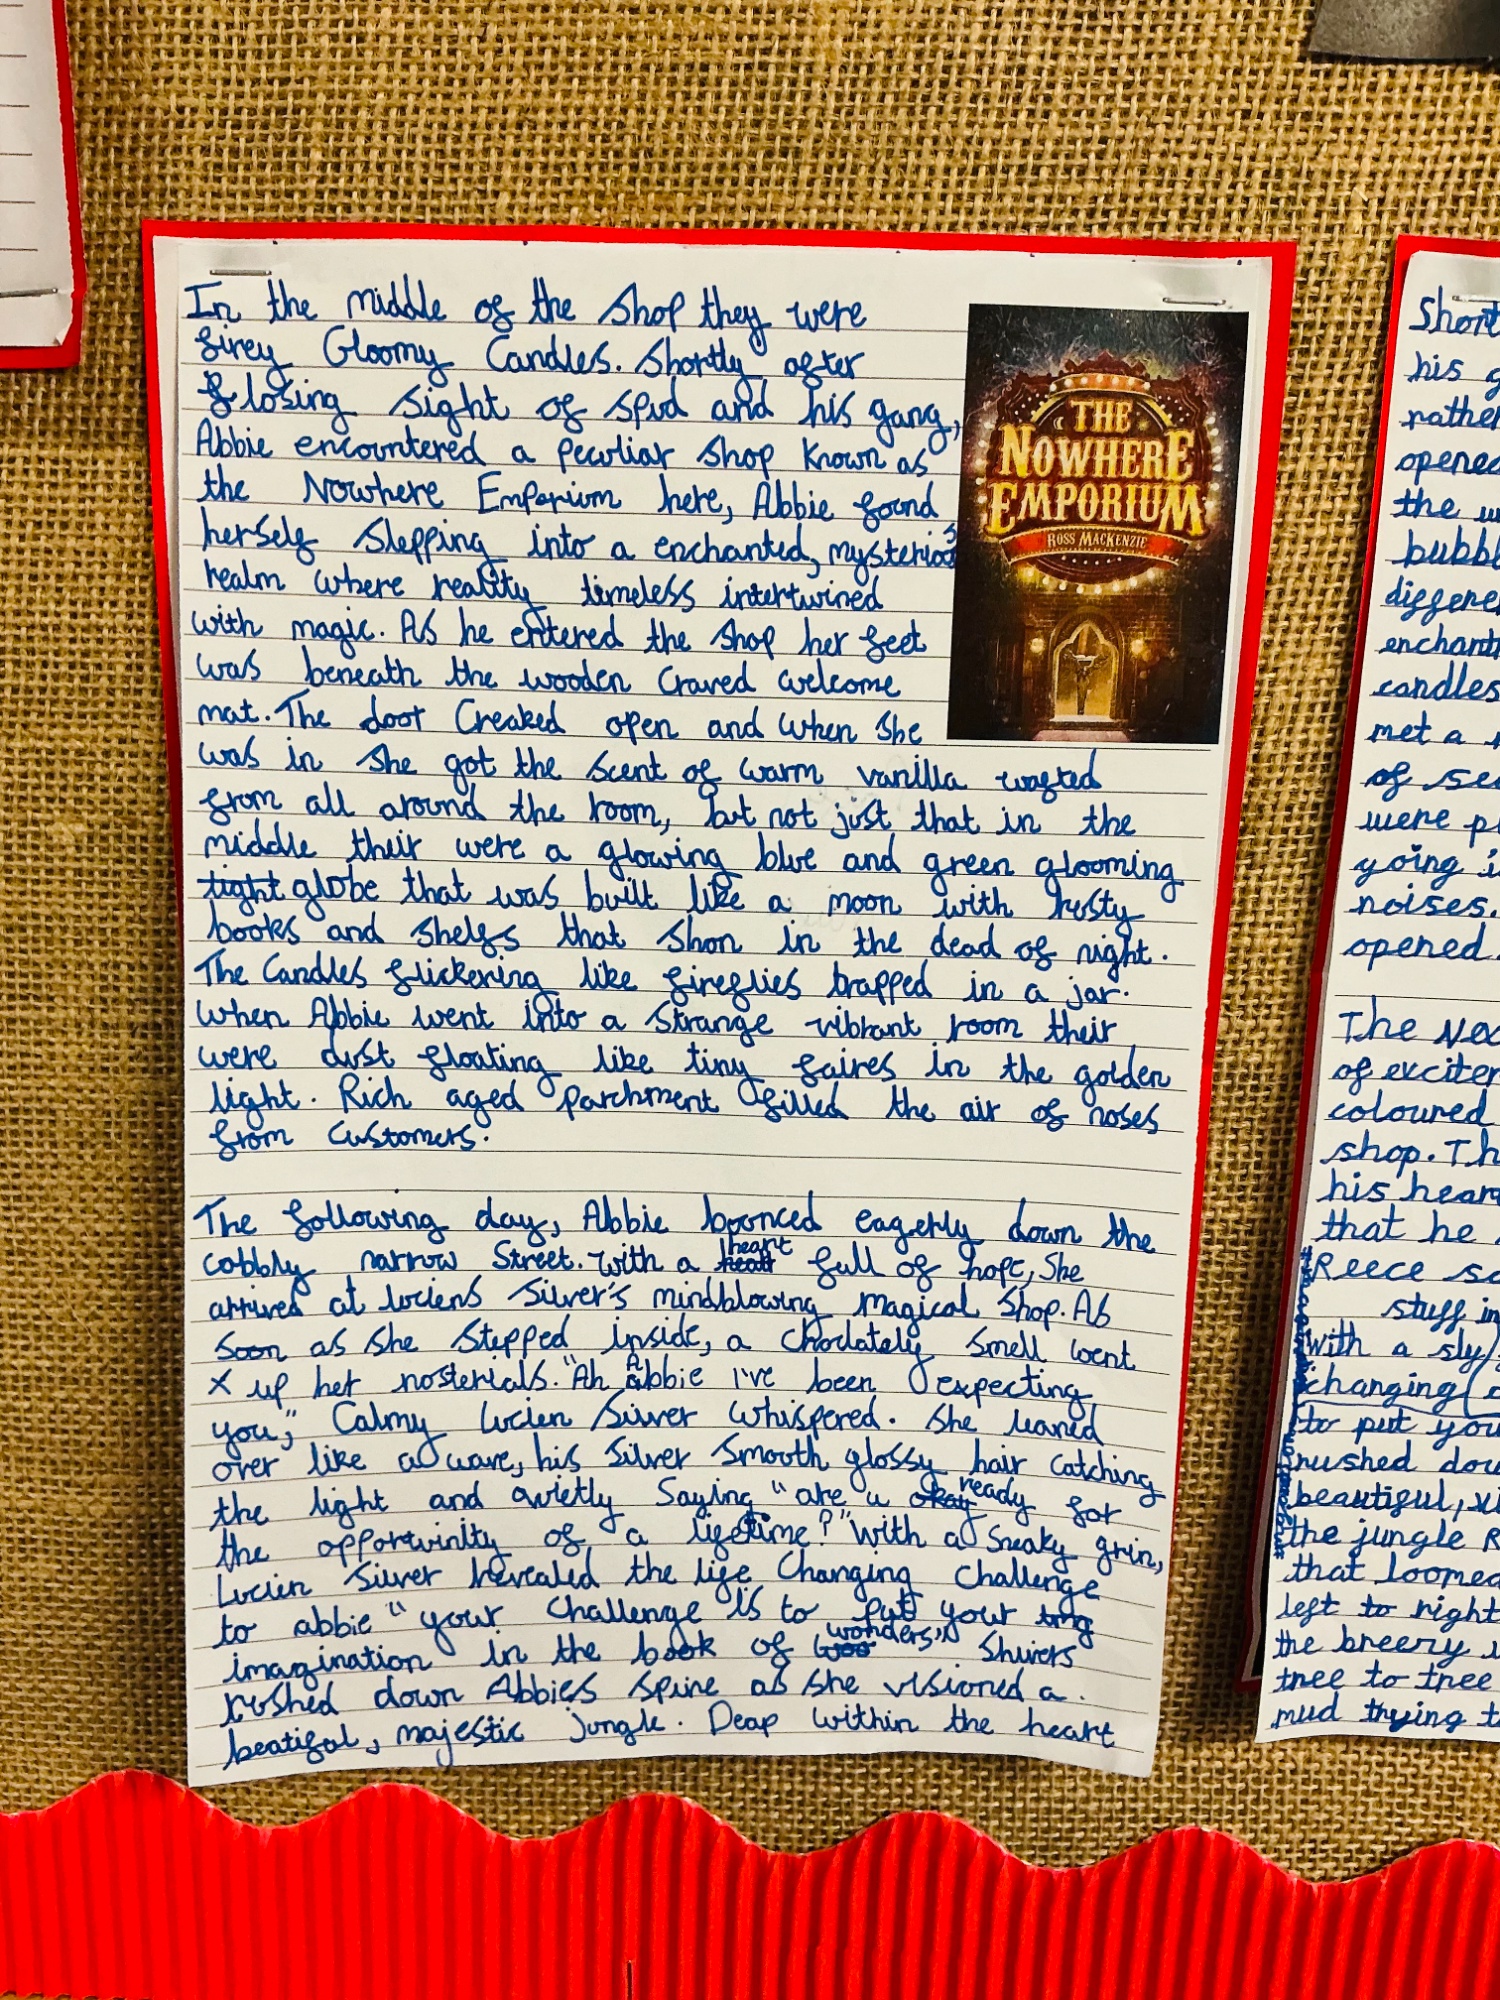 In the middle of the shop they were
firey Gloomy Candles. Shortly after
losing sight of spud and his gang,
Abbie encountered a peculiar shop known as
the Nowhere Emporium here, Abbie found
herself slepping into a enchanted, mysterious
realm where reality timeless intertwined
with magic. As he entered the shop her feet
was beneath the wooden craved welcome
mat. The door Creaked open and when she
was in she got the scent of warm vanilla wafted
from all around the room, but not just that in the
middle their were a glowing blue and green glooming
tight globe that was built like a moon with rusty
books and shelfs that shon in the dead of night.
The Candles flickering like fireflies trapped in a jar.
When Abbie went into a strange vibrant room their
were dust floating like tiny faires in the golden
light. Rich aged parchment filled the air of noses
from customers.
The following day, Abbie bounced eagerly down the
cobbly narrow Street. With a heart full of hope, She
arrived at luciens Silver's mindblowing magical shop. As
soon as she stepped inside, a choclately smell went
x up her nosterials. "Ah Abbie i've been expecting
you," Calmy Lucien Silver whispered. She leaned
over like a wave, his silver smooth glossy hair catching
the light and quietly saying "are u okay ready for
the opportwinity of a lifetime?" With a sneaky grin,
Lucien Silver revealed the life changing challenge
to abbie "your challenge is to put your
imagination in the book of wonders" Shivers
rushed down Abbies spine as she visioned a.
beatifal, majestic jungle. Deap within the heart
THE
NOWHERE
EMPORIUM
ROSS MACKENZIE
Short
his g
rather
opened
the w
bubbl
differe
enchant
candles
met a
of se
were p
going i
noises.
opened
The Noe
of exciter
coloured
shop. Th
his hear
that he
Reece so
stuff in
with a sly
changing
to put you
rushed dow
beautiful, vi
the jungle R
that loomed
left to right
the breezy
tree to tree
mud trying t